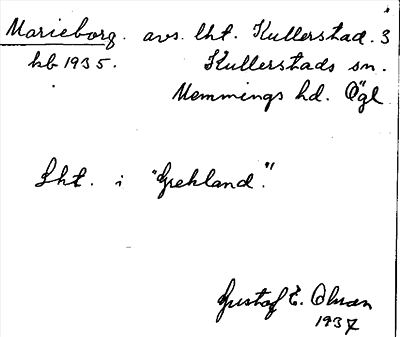 Marieborg. avs. lht. Kullerstad. 3
kb 1935. Kullerstads sn.
Memmings hd. Ögl
Lht. i "Grekland."
Gustaf E. Olsson
1937